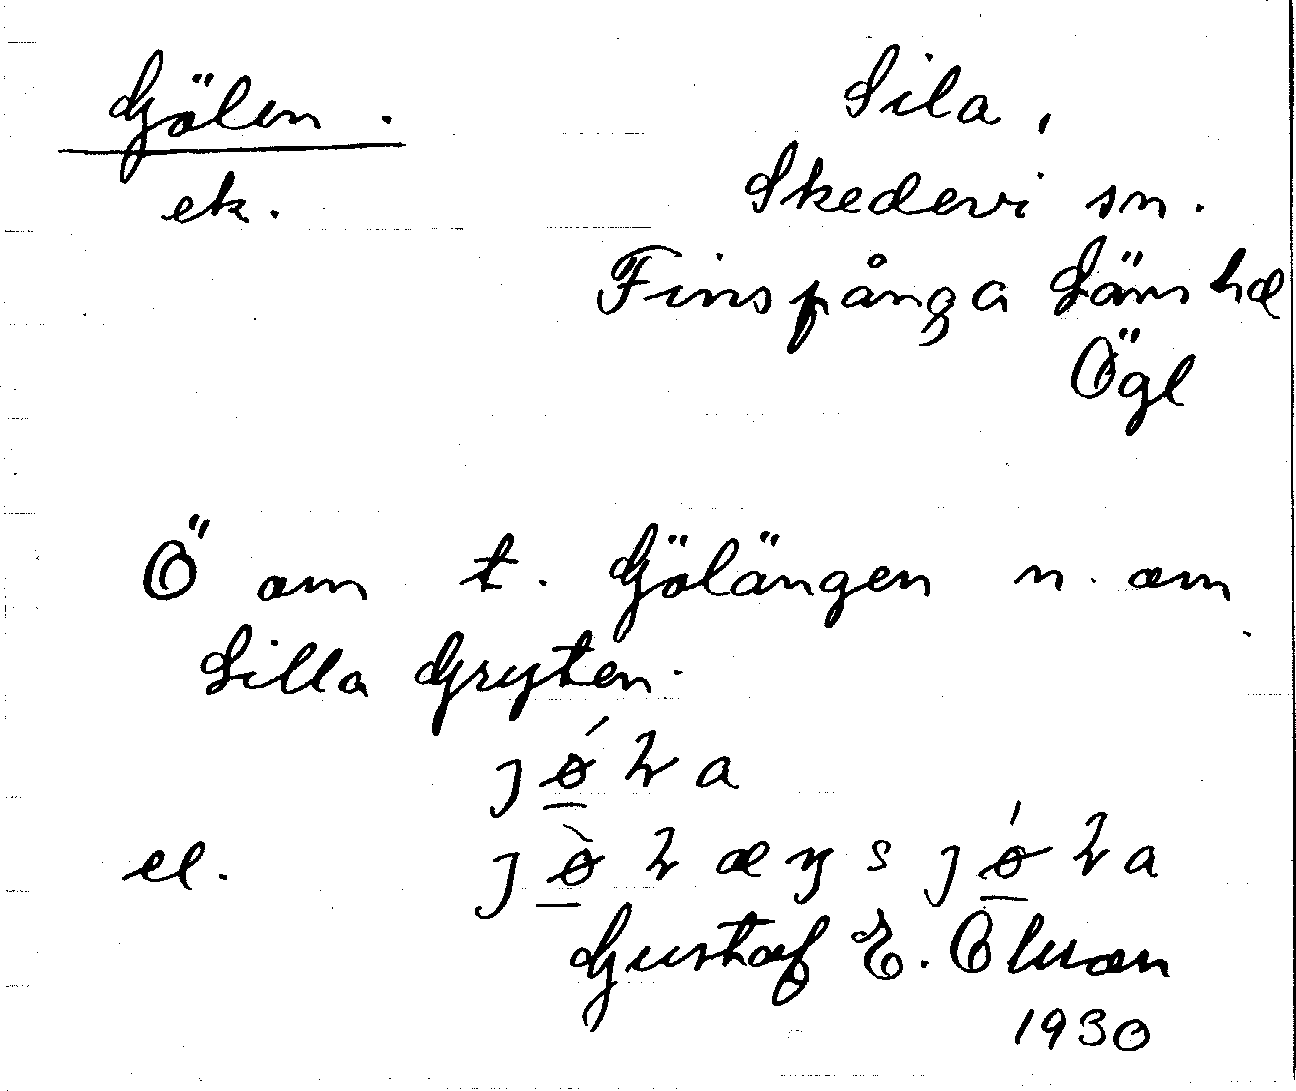 Gölen.
ek.
Lila,
Skedevi sn.
Finspånga Läns hd
Ögl
Ö om t. Gölängen n. om
Lilla Gryten.
el.
Gustaf E. Olsson
1930